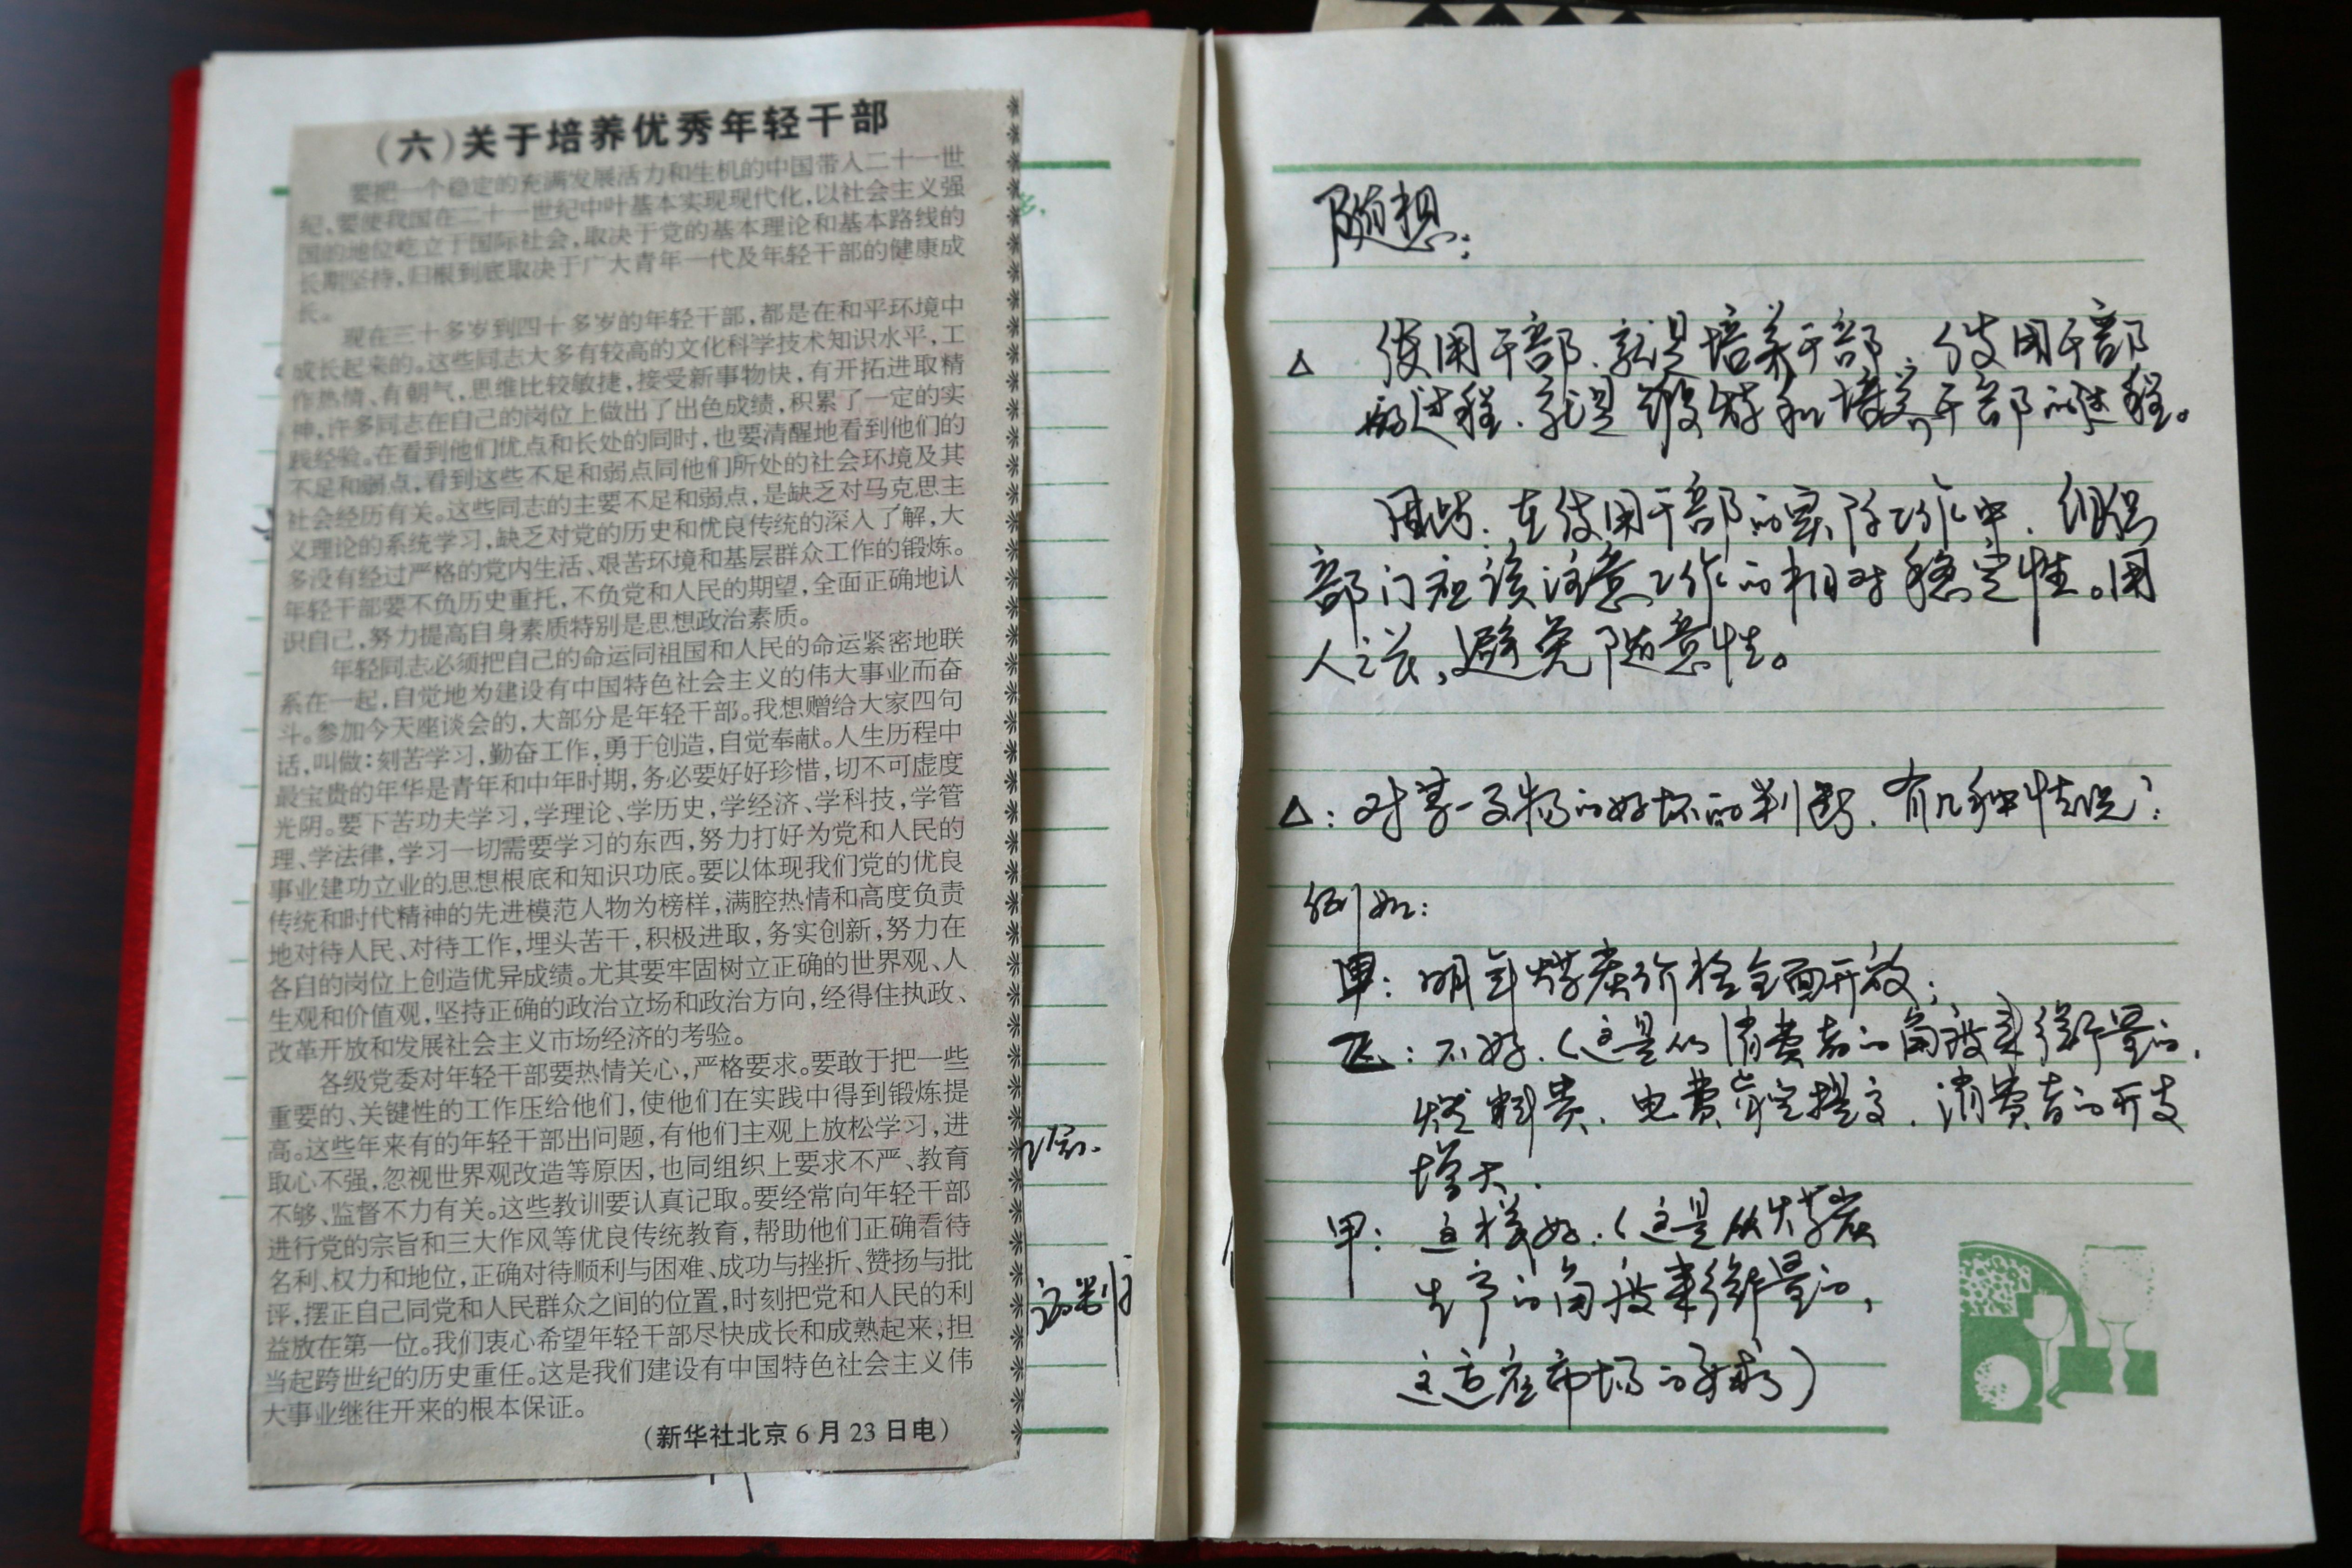 （六）关于培养优秀年轻干部
要把一个稳定的充满发展活力和生机的中国带入二十一世
纪，要使我国在二十一世纪中叶基本实现现代化，以社会主义强
国的地位屹立于国际社会，取决于党的基本理论和基本路线的
长期坚持，归根到底取决于广大青年一代及年轻干部的健康成
长。
现在三十多岁到四十多岁的年轻干部，都是在和平环境中
成长起来的。这些同志大多有较高的文化科学技术知识水平，工
作热情、有朝气，思维比较敏捷，接受新事物快，有开拓进取精
神，许多同志在自己的岗位上做出了出色成绩，积累了一定的实
践经验。在看到他们优点和长处的同时，也要清醒地看到他们的
不足和弱点，看到这些不足和弱点同他们所处的社会环境及其
社会经历有关。这些同志的主要不足和弱点，是缺乏对马克思主
义理论的系统学习，缺乏对党的历史和优良传统的深入了解，大
多没有经过严格的党内生活、艰苦环境和基层群众工作的锻炼。
年轻干部要不负历史重托，不负党和人民的期望，全面正确地认
识自己，努力提高自身素质特别是思想政治素质。
年轻同志必须把自己的命运同祖国和人民的命运紧密地联
系在一起，自觉地为建设有中国特色社会主义的伟大事业而奋
斗。参加今天座谈会的，大部分是年轻干部。我想赠给大家四句
话，叫做：刻苦学习，勤奋工作，勇于创造，自觉奉献。人生历程中
最宝贵的年华是青年和中年时期，务必要好好珍惜，切不可虚度
光阴。要下苦功夫学习，学理论、学历史，学经济、学科技，学管
理、学法律，学习一切需要学习的东西，努力打好为党和人民的
事业建功立业的思想根底和知识功底。要以体现我们党的优良
传统和时代精神的先进模范人物为榜样，满腔热情和高度负责
地对待人民、对待工作，埋头苦干，积极进取，务实创新，努力在
各自的岗位上创造优异成绩。尤其要牢固树立正确的世界观、人
生观和价值观，坚持正确的政治立场和政治方向，经得住执政、
改革开放和发展社会主义市场经济的考验。
各级党委对年轻干部要热情关心，严格要求。要敢于把一些
重要的、关键性的工作压给他们，使他们在实践中得到锻炼提
高。这些年来有的年轻干部出问题，有他们主观上放松学习，进
取心不强，忽视世界观改造等原因，也同组织上要求不严、教育
不够、监督不力有关。这些教训要认真记取。要经常向年轻干部
进行党的宗旨和三大作风等优良传统教育，帮助他们正确看待
名利、权力和地位，正确对待顺利与困难、成功与挫折、赞扬与批
评，摆正自己同党和人民群众之间的位置，时刻把党和人民的利
益放在第一位。我们衷心希望年轻干部尽快成长和成熟起来，担
当起跨世纪的历史重任。这是我们建设有中国特色社会主义伟
大事业继往开来的根本保证。
（新华社北京6月23日电）
随想：
△ 使用干部、就是培养干部，使用干部
的过程、就是锻炼和培养干部的过程。
因此、在使用干部的实际工作中、组织
部门应该注意工作的相对稳定性。用
人之长，避免随意性。
△：对某一事物的好坏的判断、有几种情况？：
例如：
甲：明年煤炭价格全面开放；
乙：不好、（这是从消费者的角度来衡量的，
燃料费、电费肯定提高、消费者的开支
增大.
甲：这样好：（这是从煤炭
生产的角度来衡量的，
这适应市场的需求）